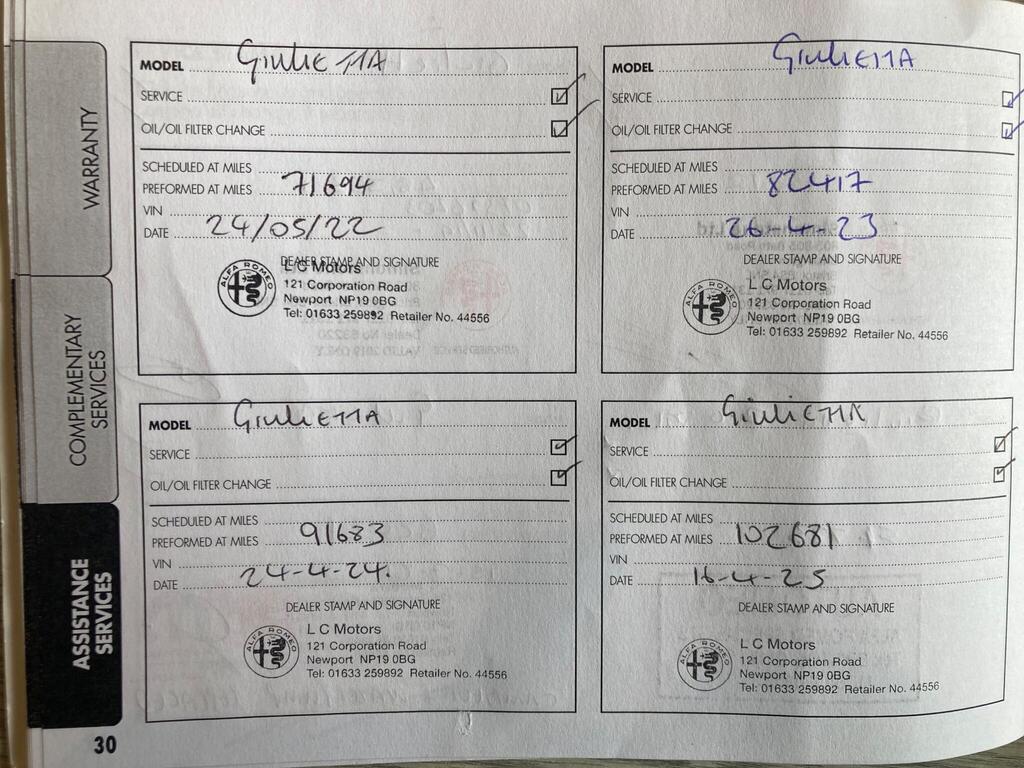 WARRANTY
COMPLEMENTARY
SERVICES
ASSISTANCE
SERVICES
MODEL GIULIETTA
SERVICE
OIL/OIL FILTER CHANGE
SCHEDULED AT MILES
PREFORMED AT MILES 71694
VIN
DATE 24/05/22
DEALER STAMP AND SIGNATURE
ALFA ROMEO
L C Motors
121 Corporation Road
Newport NP19 0BG
Tel: 01633 259892 Retailer No. 44556
MODEL GIULIETTA
SERVICE
OIL/OIL FILTER CHANGE
SCHEDULED AT MILES
PREFORMED AT MILES 82417
VIN
DATE 26-4-23
DEALER STAMP AND SIGNATURE
ALFA ROMEO
L C Motors
121 Corporation Road
Newport NP19 0BG
Tel: 01633 259892 Retailer No. 44556
MODEL GIULIETTA
SERVICE
OIL/OIL FILTER CHANGE
SCHEDULED AT MILES
PREFORMED AT MILES 91683
VIN
DATE 24-4-24.
DEALER STAMP AND SIGNATURE
ALFA ROMEO
L C Motors
121 Corporation Road
Newport NP19 0BG
Tel: 01633 259892 Retailer No. 44556
MODEL GIULIETTA
SERVICE
OIL/OIL FILTER CHANGE
SCHEDULED AT MILES
PREFORMED AT MILES 102681
VIN
DATE 16-4-25
DEALER STAMP AND SIGNATURE
ALFA ROMEO
L C Motors
121 Corporation Road
Newport NP19 0BG
Tel: 01633 259892 Retailer No. 44556
30